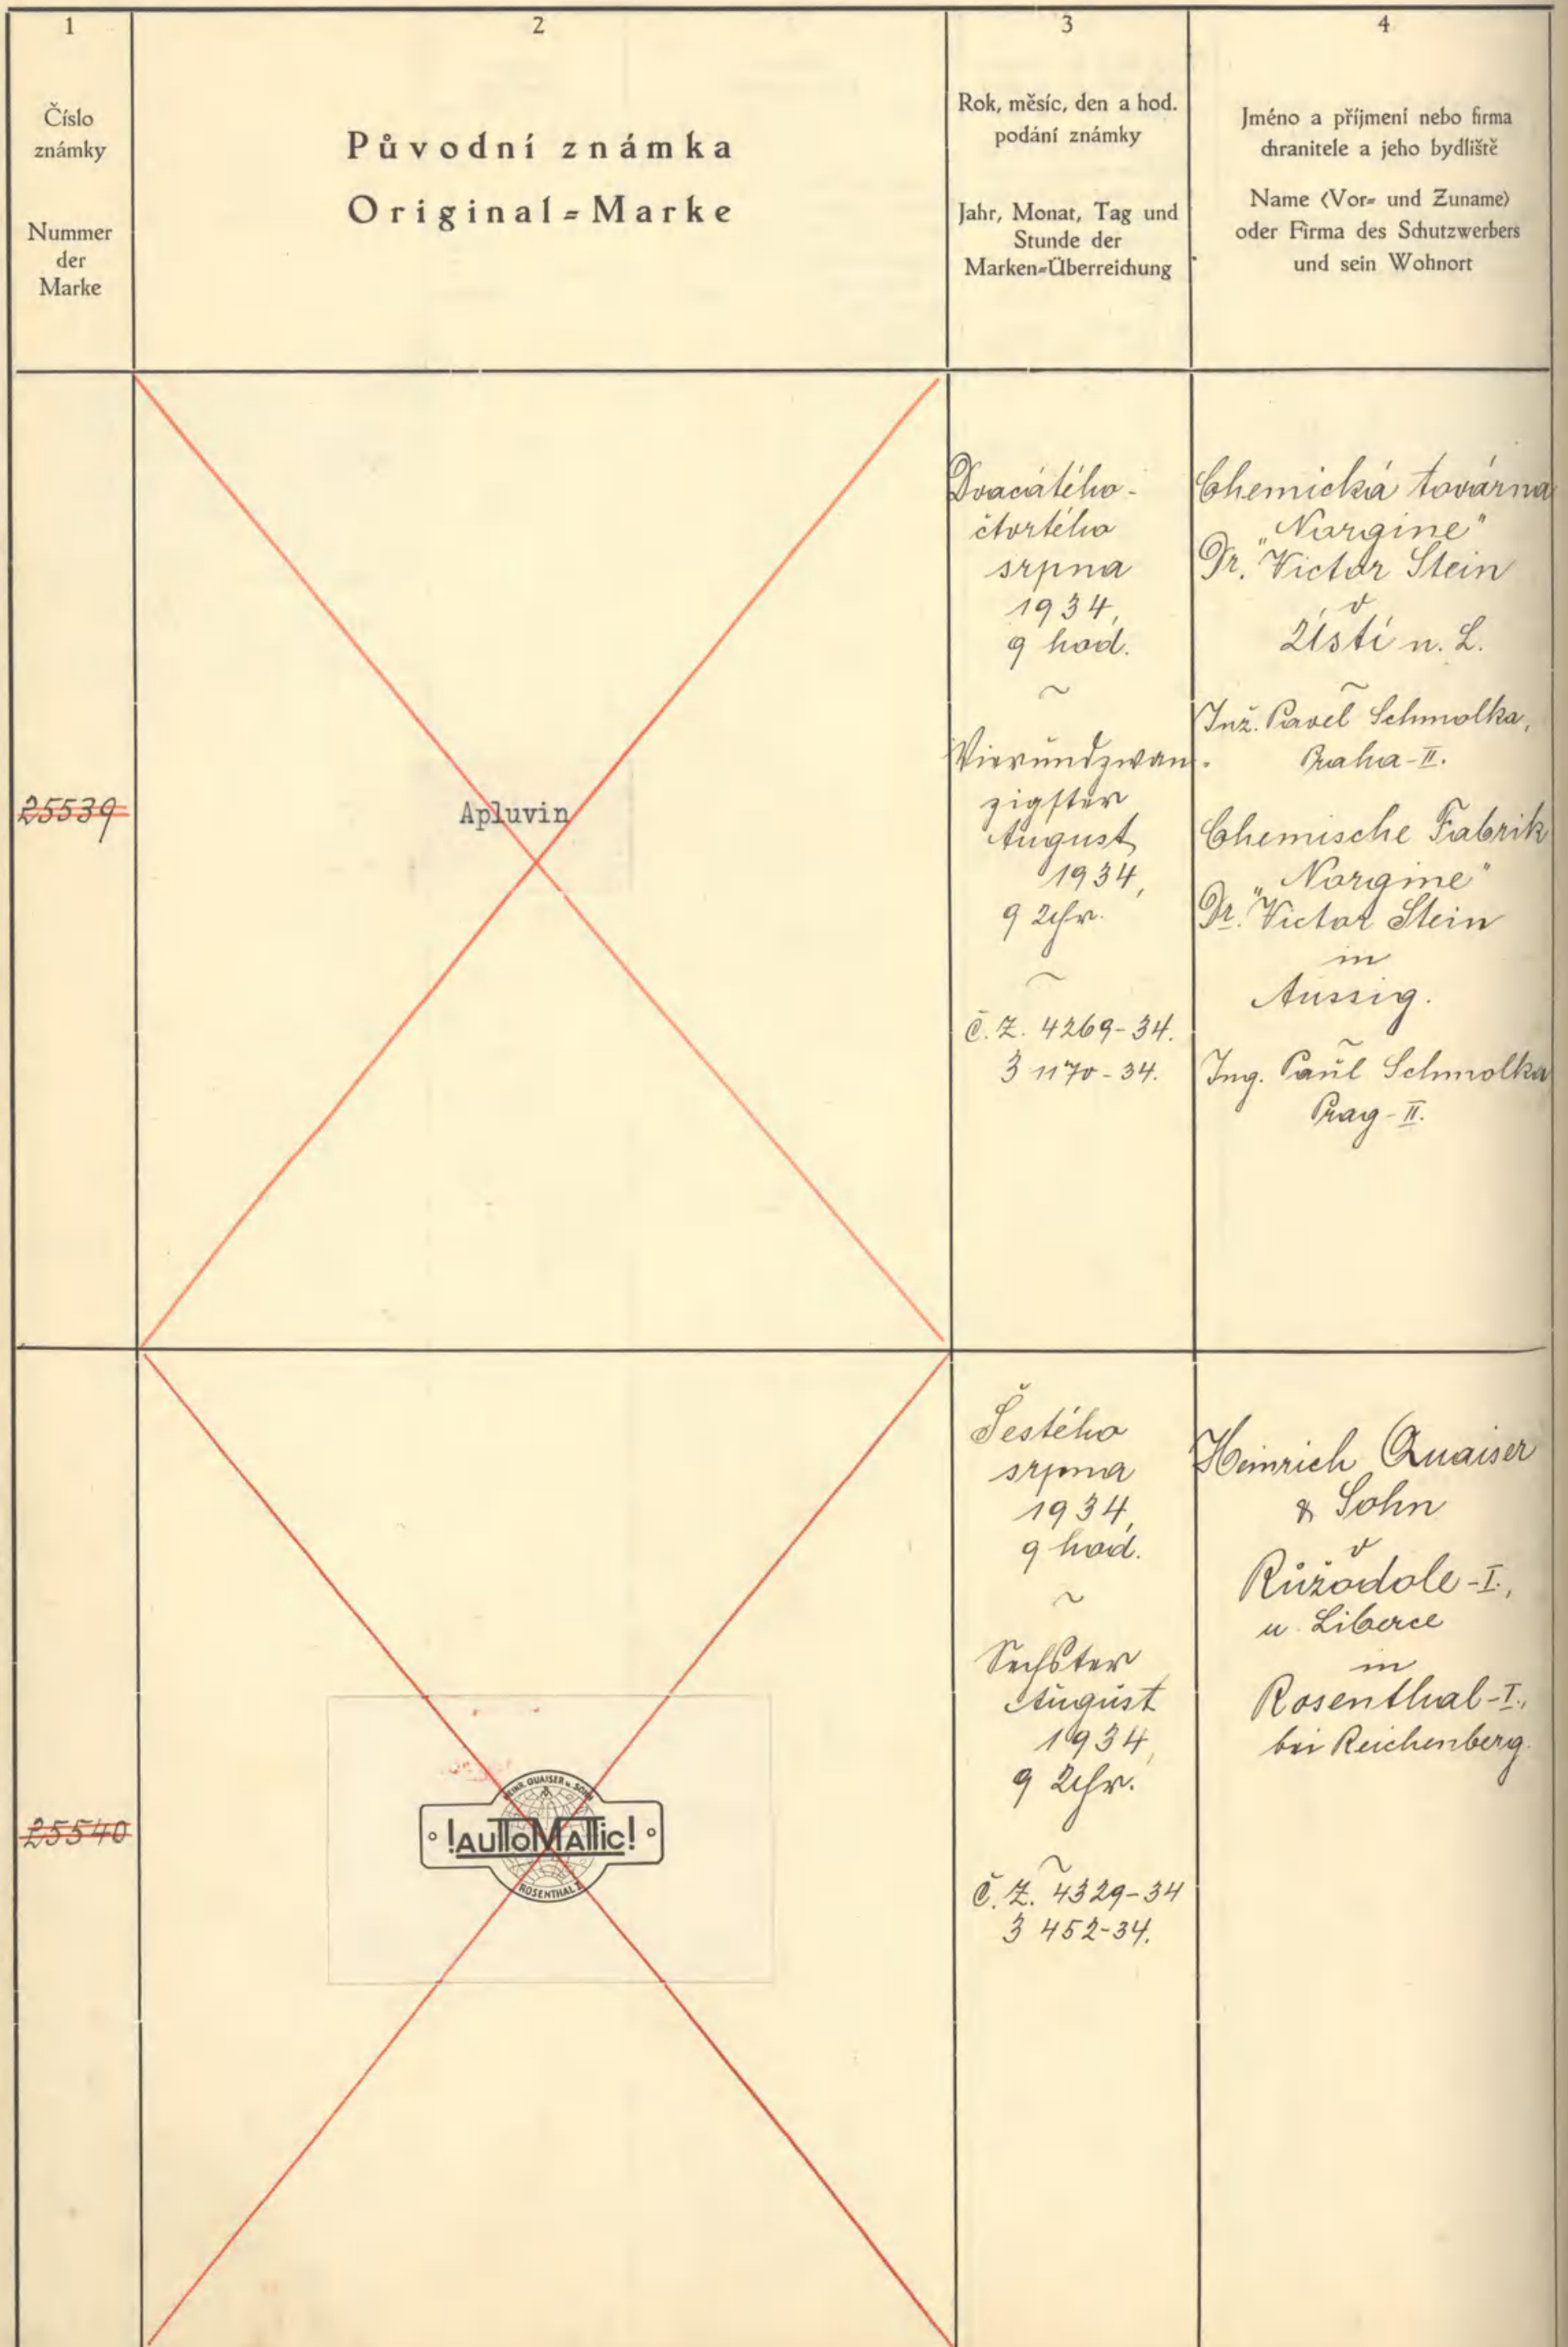 1
Číslo
známky
Nummer
der
Marke
2
Původní známka
Original=Marke
3
Rok, měsíc, den a hod.
podání známky
Jahr, Monat, Tag und
Stunde der
Marken=Überreichung
4
Jméno a příjmení nebo firma
chranitele a jeho bydliště
Name (Vor= und Zuname)
oder Firma des Schutzwerbers
und sein Wohnort
25539
Apluvin
Dvacátého-
čtvrtého
srpna
1934,
9 hod.
~
Vierundzwan-
zigster
August
1934,
9 Uhr.
~
č. Z. 4269-34.
3 1170-34.
Chemická továrna
„Norgine"
Dr. Victor Stein
v
Ústí n. L.
~
Inž. Pavel Schmolka,
Praha-II.
Chemische Fabrik
„Norgine"
Dr. Victor Stein
in
Aussig.
~
Ing. Paul Schmolka
Prag-II.
25540
HEINR. QUAISER u. SOHN
!AUTTOMATTIC!
ROSENTHAL I.
Šestého
srpna
1934,
9 hod.
~
Sechster
August
1934,
9 Uhr.
~
Č. Z. 4329-34
3 452-34.
Heinrich Quaiser
& Sohn
v
Růžodole-I.,
u Liberce
in
Rosenthal-I.,
bei Reichenberg.